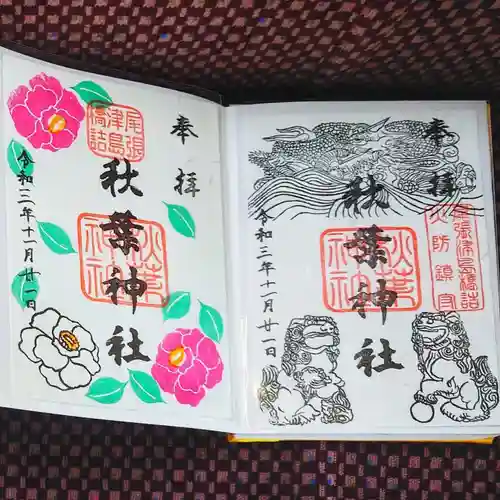 奉拝
秋葉神社
令和三年十一月廿一日
尾張
津島
橋詰
秋葉
神社
奉拝
秋葉神社
令和三年十一月廿一日
尾張津島橋詰
火防鎮守
秋葉
神社